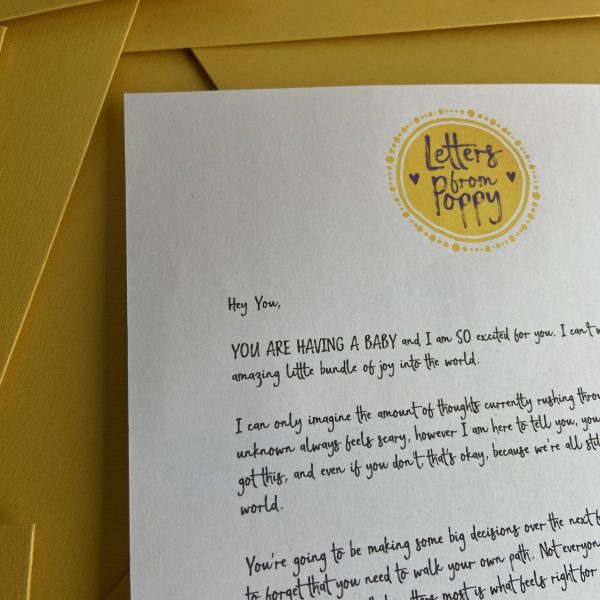 Letters
from
Poppy
Hey You,
YOU ARE HAVING A BABY and I am SO excited for you. I can't
amazing little bundle of joy into the world.
I can only imagine the amount of thoughts currently rushing
unknown always feels scary, however I am here to tell you,
got this, and even if you don't that's okay, because we're all
world.
You're going to be making some big decisions over the next
to forget that you need to walk your own path. Not everyone
most is what feels right for